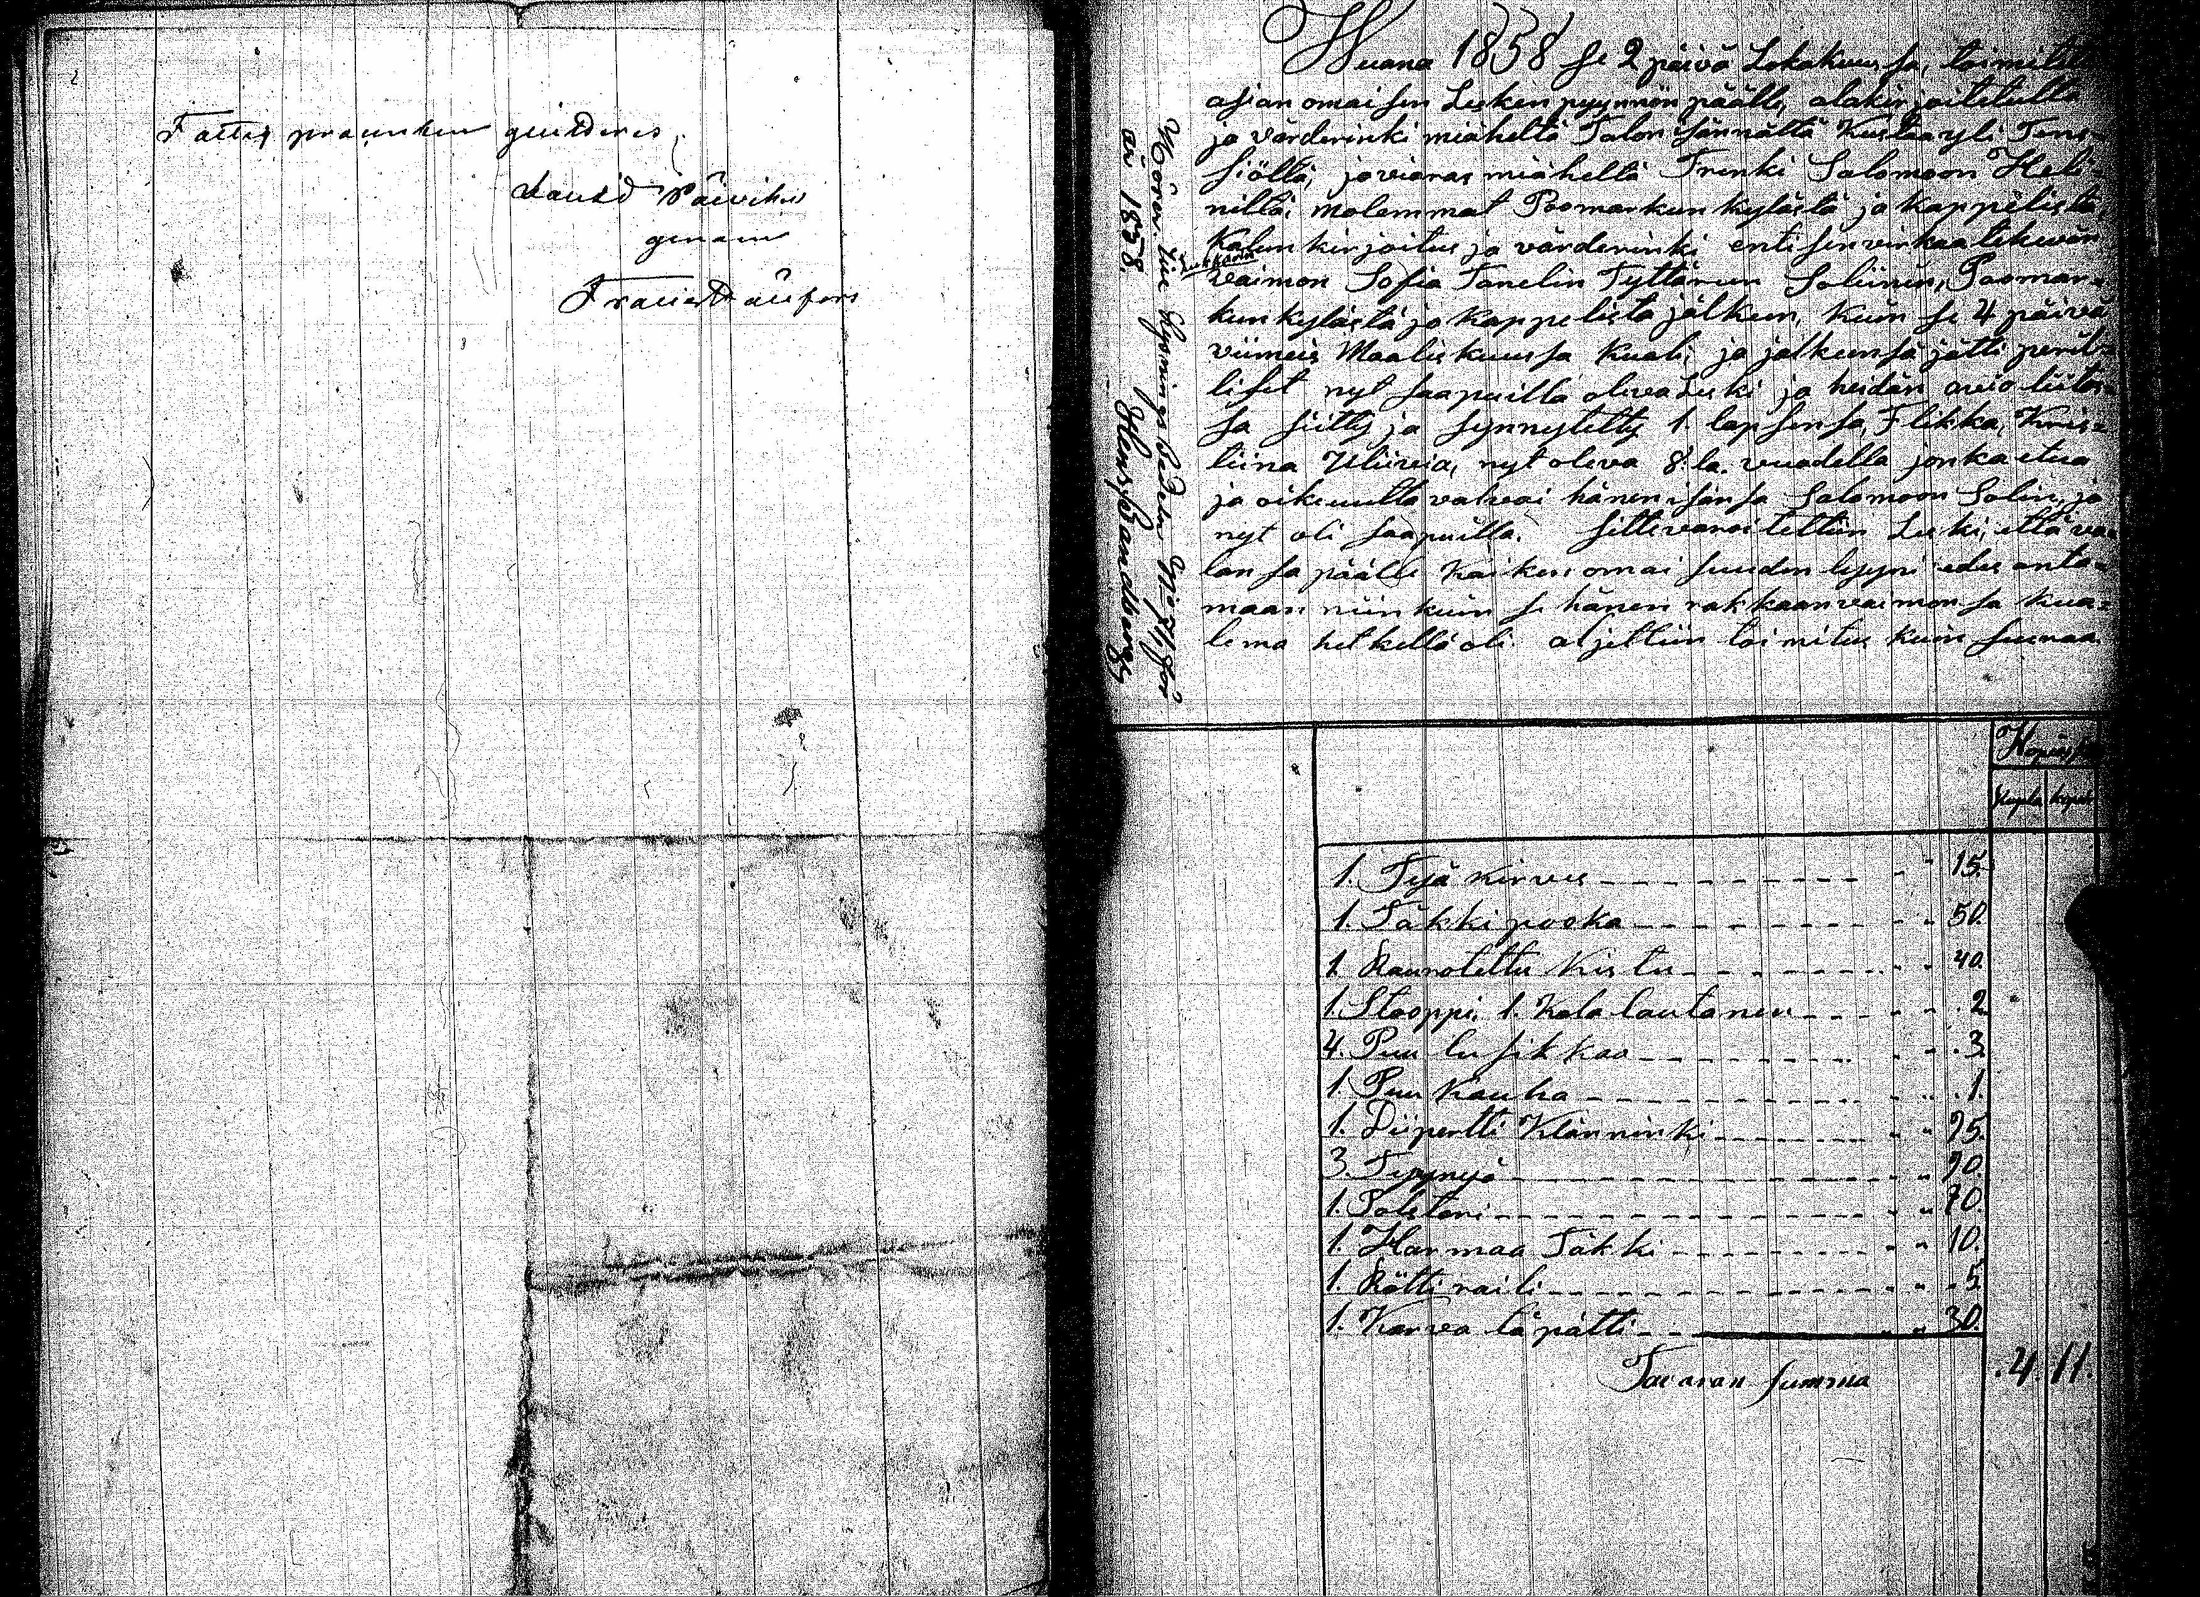 Fattig procenten guiteras
David Päiviken
genom
Frans Däufors
Wuana 1858 se 2 päivä Lokakuussa, toimitet
asian omaisen Lesken pyynnön päälle, alakirjoitetulta
ja värderinki mieheltä Talon isännältä Kustaa yli Tens-
siöltä, ja vieras mieheltä Trenki Salomoon Heli-
niltä, molemmat Poomarkun kylästä ja Kappelista
Kalun kirjoitus ja värderinki entisen virkaa tekevän
Lukkarin
vaimon Sofia Tanelin Tyttären Soliinin, Poomar-
kun kylästä ja Kappelista jälkeen, Kuin se 4 päivä
viimeis Maaliskuussa Kuali, ja jälkeensä jätti peril-
liset nyt saapuilla oleva Leski ja heidän avioliitos-
sa siitty ja synnytetty 1. lapsensa, Flikka, Kris-
tiina Uliivia, nyt oleva 8.la. vuodella jonka etua
ja oikeuutta valvoi hänen isänsä Salomoon Solin, ja
nyt oli saapuilla. Sitte varoitettiin Leski, että va-
lansa päälle Kaiken omaisuuden lyyni edes anta-
maan niinkuin se hänen rakkaan vaimonsa Kua-
lema hetkellä oli. aljettiin toimitus kuin seuraa
år 1858. Hens Sandberg
Hopias
Rupla Kopek
1. Tyä kirves 15.
1. Täkki pooka 50.
1. Raunotettu Kistu 40.
1. Stooppi, 1. Kala lautanen 2
4. Puu lusikkaa 3.
1. Puu Kauha 1.
1. Liipertti Klänninki 95.
3. Tyynyä 90.
1. Polstari 70.
1. Harmaa Täkki 10.
1. Rätti raili 5.
1. Karva läpätti 30.
Tavaran summa 4. 11.